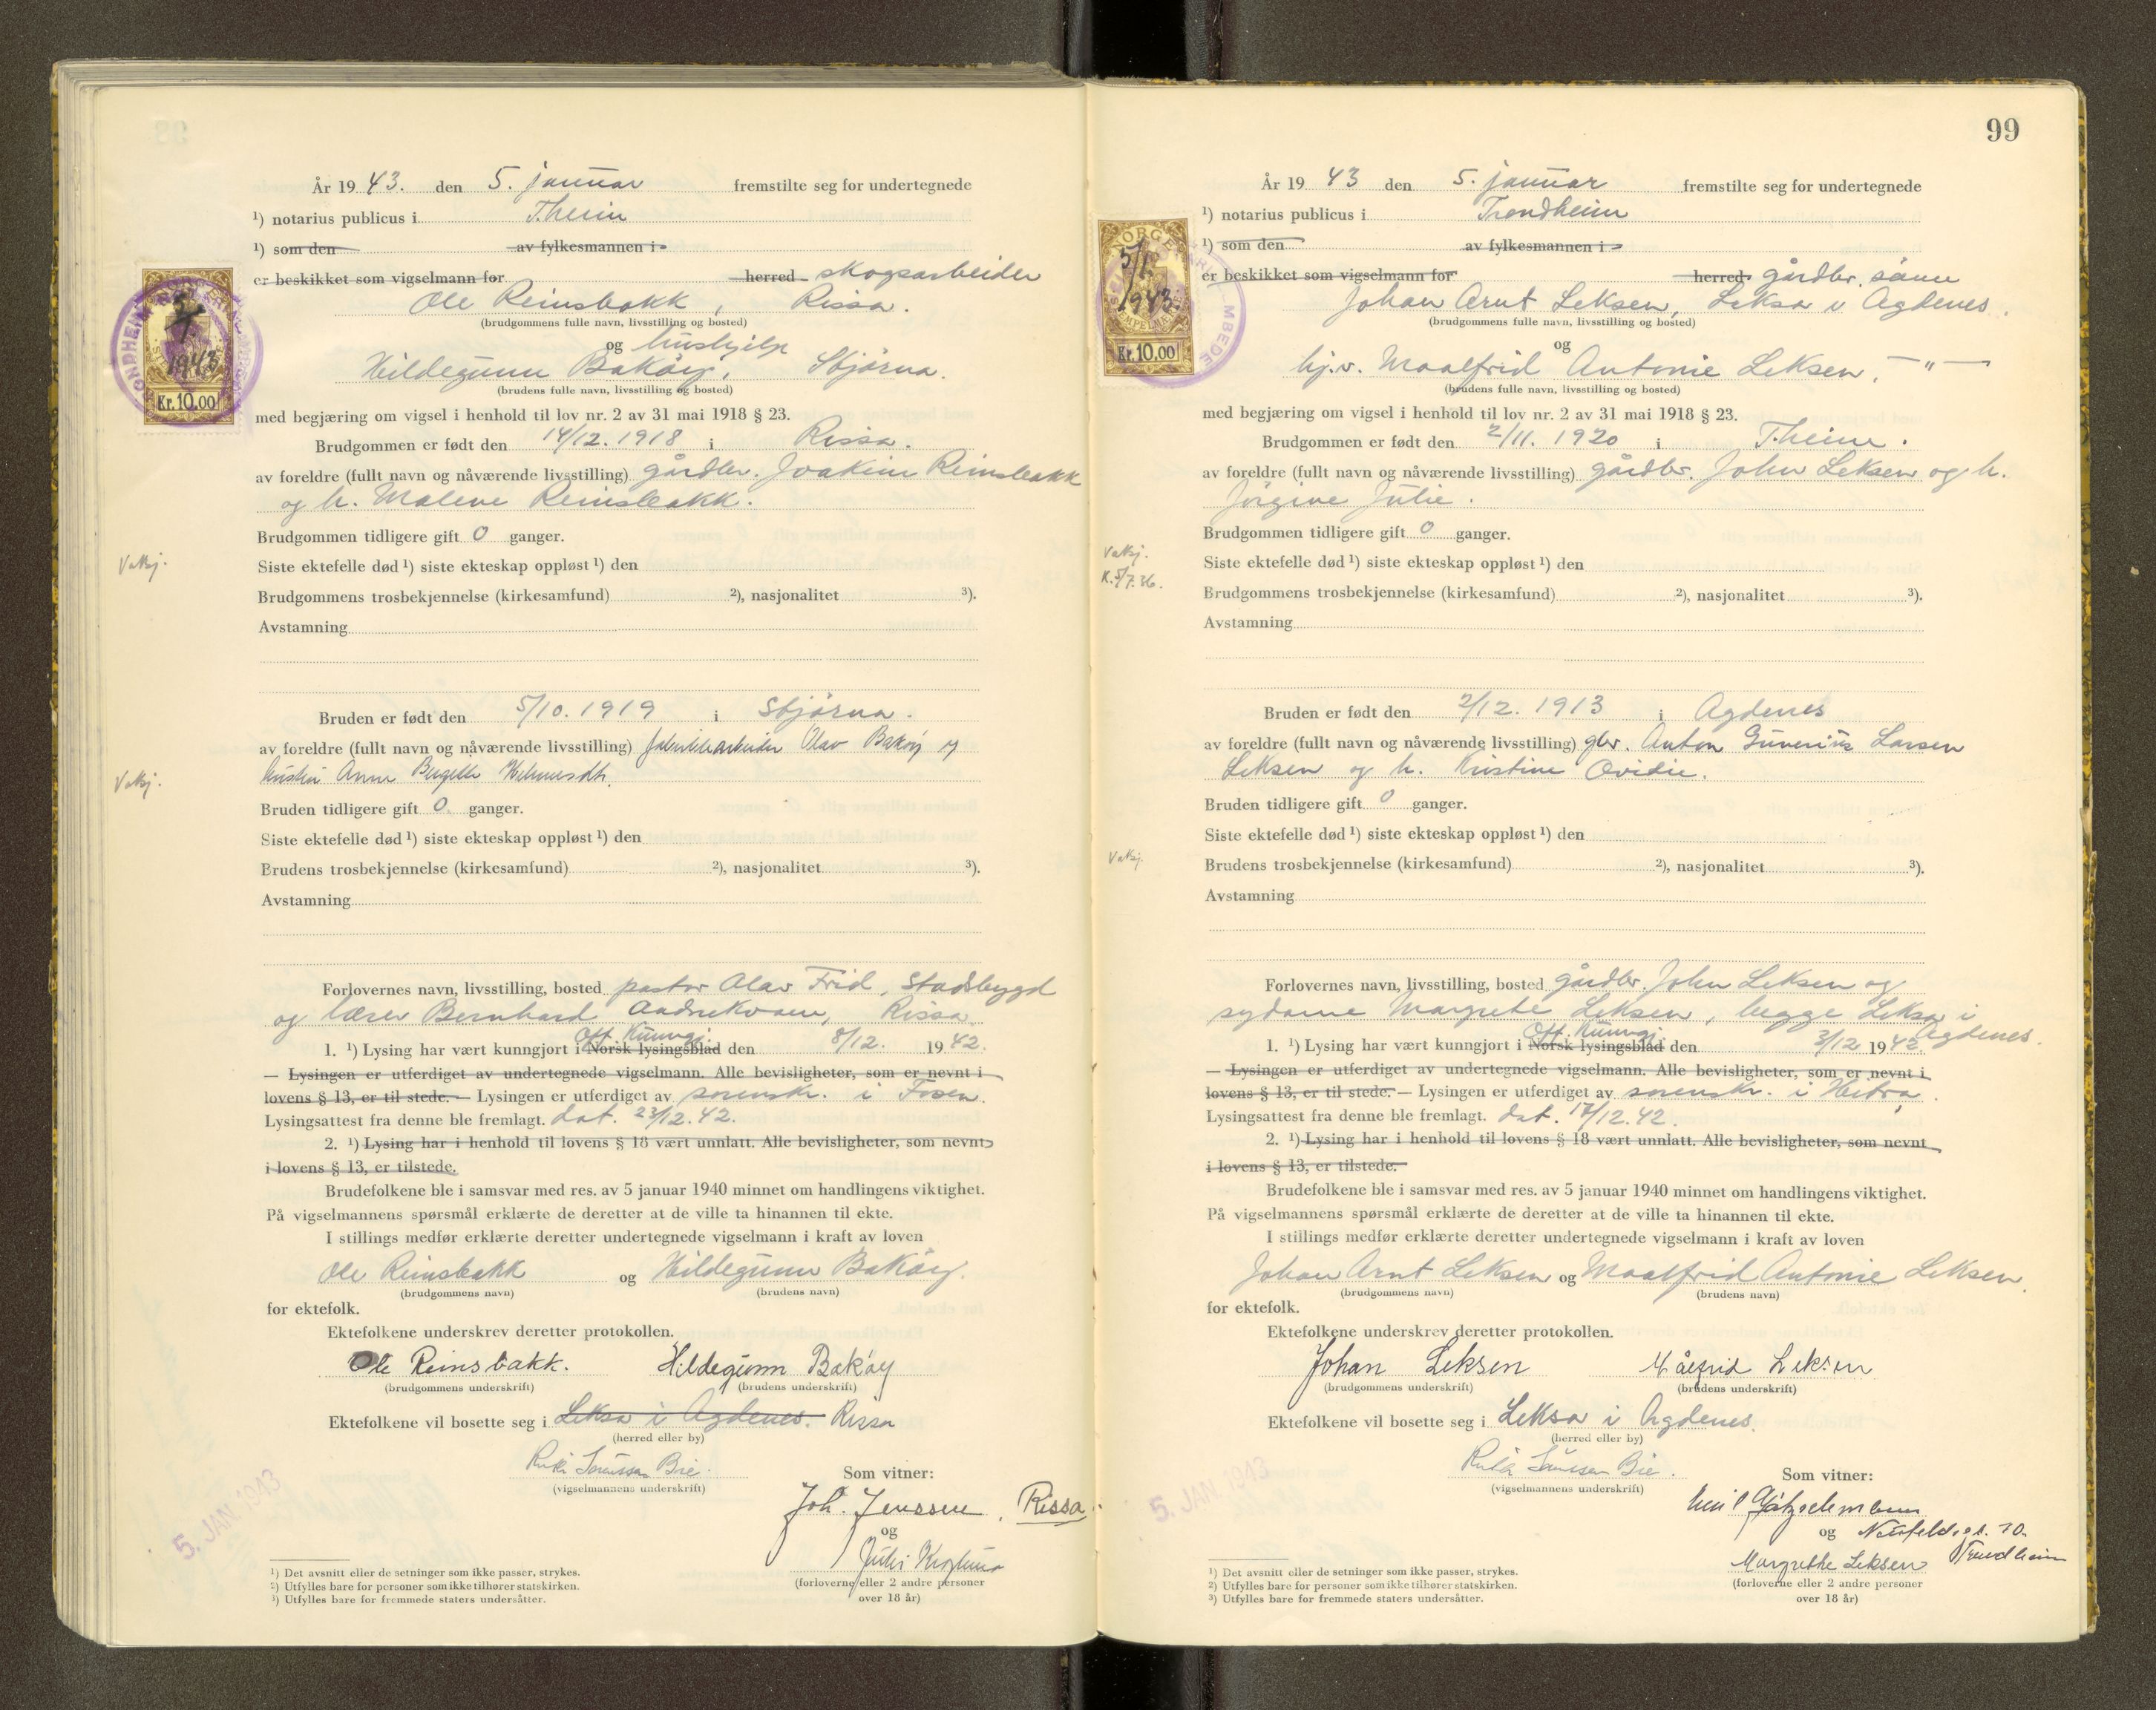 År 19 43. den 5. januar fremstilte seg for undertegnede
¹) notarius publicus i T.heim
¹) som den av fylkesmannen i
er beskikket som vigselmann for herred skogsarbeider
Ole Reinsbakk, Rissa.
(brudgommens fulle navn, livsstilling og bosted)
og hushjelp
Hildegunn Bakøy, Stjørna.
(brudens fulle navn, livsstilling og bosted)
Kr. 10.00
1943
med begjæring om vigsel i henhold til lov nr. 2 av 31 mai 1918 § 23.
Brudgommen er født den 14/12. 1918 i Rissa.
av foreldre (fullt navn og nåværende livsstilling) gårdbr. Joakim Reinsbakk
og h. Malene Reinsbakk.
Brudgommen tidligere gift 0 ganger.
Vakj.
Siste ektefelle død ¹) siste ekteskap oppløst ¹) den
Brudgommens trosbekjennelse (kirkesamfund) ²), nasjonalitet ³).
Avstamning
Bruden er født den 5/10. 1919 i Stjørna.
av foreldre (fullt navn og nåværende livsstilling) Olav Bakøy og
hustru Anna Bergitte
Vakj.
Bruden tidligere gift 0 ganger.
Siste ektefelle død ¹) siste ekteskap oppløst ¹) den
Brudens trosbekjennelse (kirkesamfund) ²), nasjonalitet ³).
Avstamning
Forlovernes navn, livsstilling, bosted pastor Olav Frid, Stadsbygd
og lærer Bernhard Rissa.
Off. Kunngj.
1. ¹) Lysing har vært kunngjort i Norsk lysingsblad den 8/12. 19 42.
— Lysingen er utferdiget av undertegnede vigselmann. Alle bevisligheter, som er nevnt i
lovens § 13, er til stede. — Lysingen er utferdiget av sorenskr. i Fosen.
Lysingsattest fra denne ble fremlagt. dat. 23/12. 42.
2. ¹) Lysing har i henhold til lovens § 18 vært unnlatt. Alle bevisligheter, som nevnt
i lovens § 13, er tilstede.
Brudefolkene ble i samsvar med res. av 5 januar 1940 minnet om handlingens viktighet.
På vigselmannens spørsmål erklærte de deretter at de ville ta hinannen til ekte.
I stillings medfør erklærte deretter undertegnede vigselmann i kraft av loven
Ole Reinsbakk og Hildegunn Bakøy.
(brudgommens navn) (brudens navn)
for ektefolk.
Ektefolkene underskrev deretter protokollen.
Ole Reinsbakk. Hildegunn Bakøy
(brudgommens underskrift) (brudens underskrift)
Ektefolkene vil bosette seg i Leksa i Agdenes. Rissa
(herred eller by)
(vigselmannens underskrift)
Som vitner:
5. JAN. 1943
Joh. Jenssen, Rissa.
og
(forloverne eller 2 andre personer
over 18 år)
¹) Det avsnitt eller de setninger som ikke passer, strykes.
²) Utfylles bare for personer som ikke tilhører statskirken.
³) Utfylles bare for fremmede staters undersåtter.
99
År 19 43 den 5. januar fremstilte seg for undertegnede
¹) notarius publicus i Trondheim
¹) som den av fylkesmannen i
er beskikket som vigselmann for herred gårdbr. sønn
Johan Arnt Leksen, Leksa i Agdenes.
(brudgommens fulle navn, livsstilling og bosted)
og
hj.v. Maalfrid Antonie Leksen, — " —
(brudens fulle navn, livsstilling og bosted)
NORGE
5/1.
1943
Kr. 10.00
med begjæring om vigsel i henhold til lov nr. 2 av 31 mai 1918 § 23.
Brudgommen er født den 2/11. 1920 i T.heim.
av foreldre (fullt navn og nåværende livsstilling) gårdbr. John Leksen og h.
Jørgine Julie.
Brudgommen tidligere gift 0 ganger.
Vakj.
K. 5/7.36.
Siste ektefelle død ¹) siste ekteskap oppløst ¹) den
Brudgommens trosbekjennelse (kirkesamfund) ²), nasjonalitet ³).
Avstamning
Bruden er født den 2/12. 1913 i Agdenes
av foreldre (fullt navn og nåværende livsstilling) gbr. Anton Gunerius Larsen
Leksen og h. Kristine Ovidie.
Bruden tidligere gift 0 ganger.
Siste ektefelle død ¹) siste ekteskap oppløst ¹) den
Vakj.
Brudens trosbekjennelse (kirkesamfund) ²), nasjonalitet ³).
Avstamning
Forlovernes navn, livsstilling, bosted gårdbr. John Leksen og
sydame Margrete Leksen, begge Leksa i
Off. Kunngj. Agdenes.
1. ¹) Lysing har vært kunngjort i Norsk lysingsblad den 3/12 19 42.
— Lysingen er utferdiget av undertegnede vigselmann. Alle bevisligheter, som er nevnt i
lovens § 13, er til stede. — Lysingen er utferdiget av sorenskr. i Hitra.
Lysingsattest fra denne ble fremlagt. dat. 17/12. 42.
2. ¹) Lysing har i henhold til lovens § 18 vært unnlatt. Alle bevisligheter, som nevnt
i lovens § 13, er tilstede.
Brudefolkene ble i samsvar med res. av 5 januar 1940 minnet om handlingens viktighet.
På vigselmannens spørsmål erklærte de deretter at de ville ta hinannen til ekte.
I stillings medfør erklærte deretter undertegnede vigselmann i kraft av loven
Johan Arnt Leksen og Maalfrid Antonie Leksen.
(brudgommens navn) (brudens navn)
for ektefolk.
Ektefolkene underskrev deretter protokollen.
Johan Leksen Målfrid Leksen
(brudgommens underskrift) (brudens underskrift)
Ektefolkene vil bosette seg i Leksa i Agdenes.
(herred eller by)
(vigselmannens underskrift)
Som vitner:
5. JAN. 1943
og
Margrethe Leksen Trondheim
(forloverne eller 2 andre personer
over 18 år)
¹) Det avsnitt eller de setninger som ikke passer, strykes.
²) Utfylles bare for personer som ikke tilhører statskirken.
³) Utfylles bare for fremmede staters undersåtter.